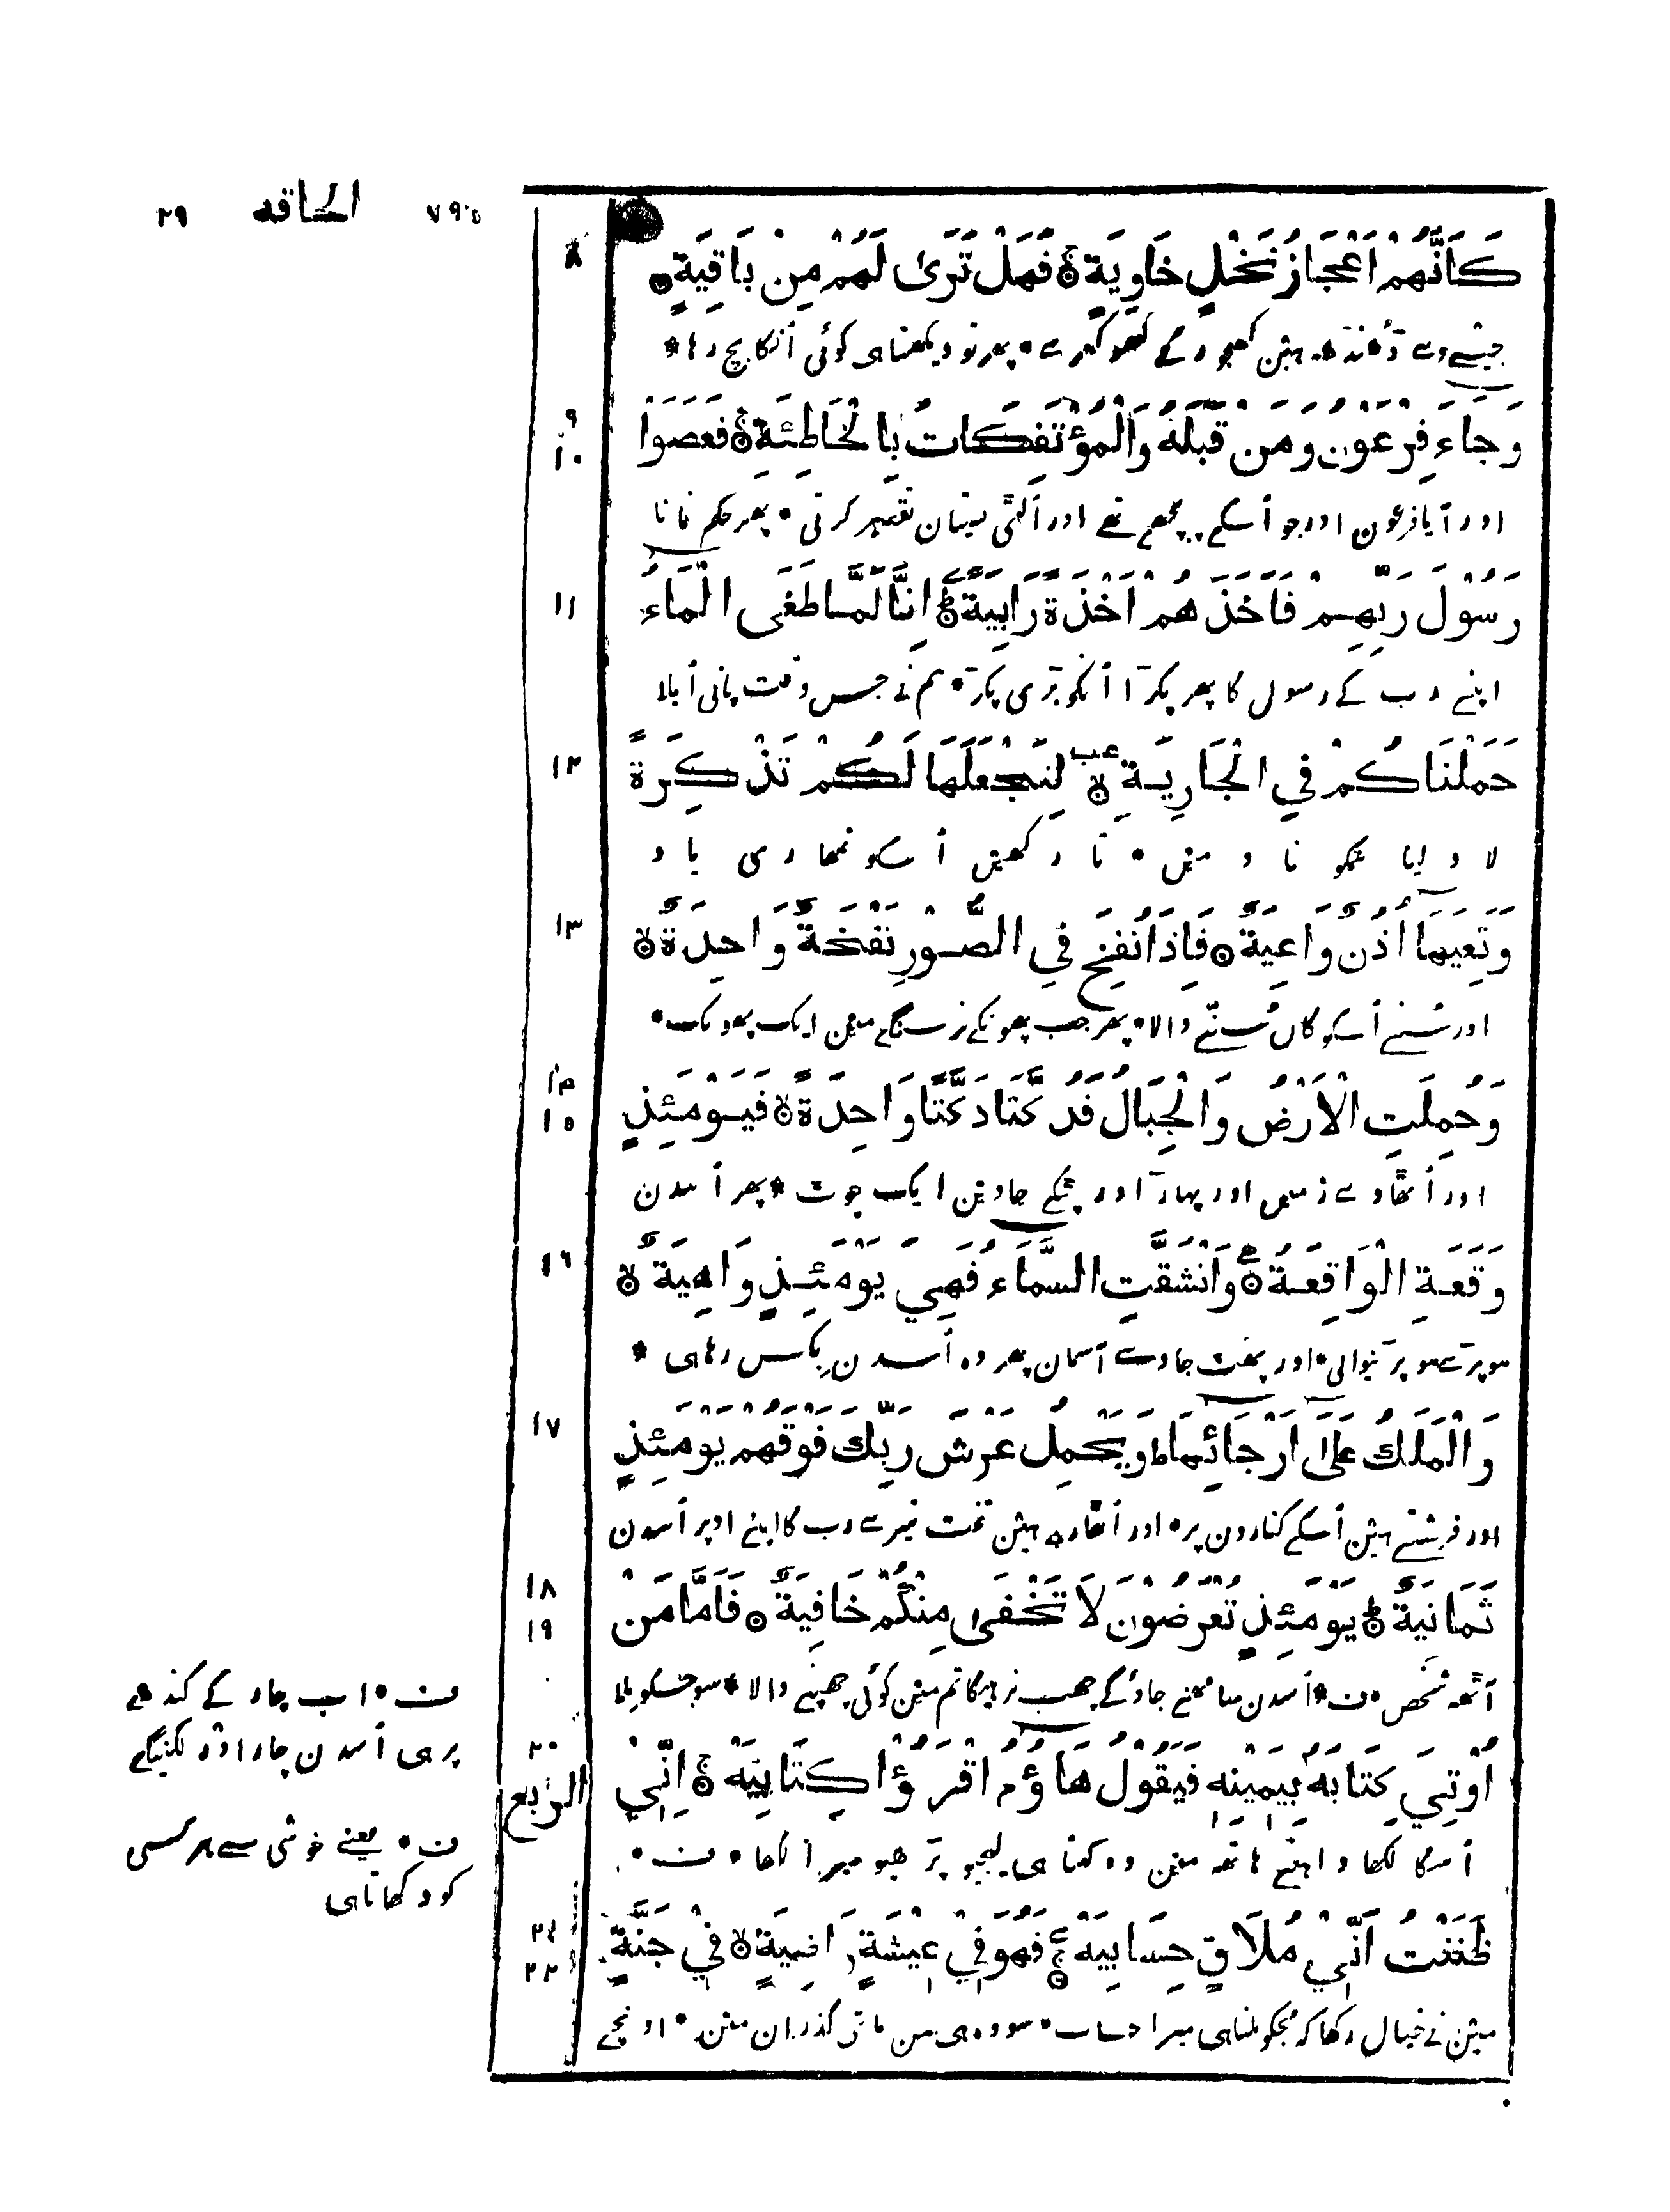 ٧٩٥ الحاقه ٢٩
٨
كَاَنَّهُمْ اَعْجَازُ نَخْلٍ خَاوِيَةٍ فَهَلْ تَرَىٰ لَهُمْ مِنْ بَاقِيَةٍ
جیسے وے ڈھنڈھ هین کھجور کے کھوکھرے • پھر تو دیکھتا ہی کوئی اُنکا بچ رہا *
٩
١٠
وَجَاءَ فِرْعَوْنُ وَمَنْ قَبْلَهُ وَالْمُؤْتَفِكَاتُ بِالْخَاطِئَةِ فَعَصَوْا
اور آیا فرعون اور جو اُسکے پیچھے تھے اور اُلٹی بستیان تقصیر کرتی • پھر حکم نمانا
١١
رَسُوْلَ رَبِّهِمْ فَاَخَذَهُمْ اَخْذَةً رَابِيَةً اِنَّا لَمَّا طَغَى الْمَاءُ
اپنے رب کے رسول کا پھر پکڑا اُنکو بڑی پکڑ • ہم نے جس وقت پانی اُبلا
١٢
حَمَلْنَاكُمْ فِي الْجَارِيَةِ لِنَجْعَلَهَا لَكُمْ تَذْكِرَةً
لاد لیا تمکو ناو مین • تا رکھین اُسکو تمھاری یاد
١٣
وَتَعِيَهَا اُذُنٌ وَاعِيَةٌ فَاِذَا نُفِخَ فِي الصُّوْرِ نَفْخَةٌ وَاحِدَةٌ
اور سُنے اُسکو کان سُننے والا • پھر جب پھونکے نرسنگے مین ایک پھونک •
١٤
١٥
وَحُمِلَتِ الْاَرْضُ وَالْجِبَالُ فَدُكَّتَا دَكَّةً وَاحِدَةً فَيَوْمَئِذٍ
اور اُٹھاوے زمین اور پہاڑ اور پٹکے جاوین ایک چوٹ * پھر اُسدن
١٦
وَقَعَةِ الْوَاقِعَةُ وَانْشَقَّتِ السَّمَاءُ فَهِيَ يَوْمَئِذٍ وَاهِيَةٌ
ہو پڑے ہو پڑنیوالی • اور پھٹ جاوے آسمان پھر وہ اُسدن بِکس رہا ہی *
١٧
وَالْمَلَكُ عَلَىٰ اَرْجَائِهَا وَيَحْمِلُ عَرْشَ رَبِّكَ فَوْقَهُمْ يَوْمَئِذٍ
اور فرشتے ہین اُسکے کنارون پر • اور اُٹھارہ ہین تخت تیرے رب کا اپنے اوپر اُسدن
١٨
١٩
ثَمَانِيَةٌ يَوْمَئِذٍ تُعْرَضُوْنَ لَا تَخْفَىٰ مِنْكُمْ خَافِيَةٌ فَاَمَّا مَنْ
آٹھ شخص • ف * اُسدن سامھنے جاؤگے چھپ نرہیگا تم مین کوئی چھپنے والا * سو جسکو ملا
٢٠
الربع
اُوْتِيَ كِتَابَهُ بِيَمِيْنِهِ فَيَقُوْلُ هَاؤُمُ اقْرَؤُا كِتَابِيَهْ اِنِّيْ
اُسکا لکھا داہنے ہاتھ مین وہ کہتا ہی لیجیو پڑھیو میرا لکھا • ف •
٢١
٢٢
ظَنَنْتُ اَنِّيْ مُلَاقٍ حِسَابِيَهْ فَهُوَ فِيْ عِيْشَةٍ رَاضِيَةٍ فِيْ جَنَّةٍ
مین نے خیال رکھا کہ مجکو ملنا ہی میرا حساب • سو وہ ہی من مانتی گذران مین • اونچے
ف • اب چار کے کندھے
پر ہی اُسدن چار اوُر لگینگے
ف • یعنے خوشی سے ہر کسی
کو دکھاتا ہی